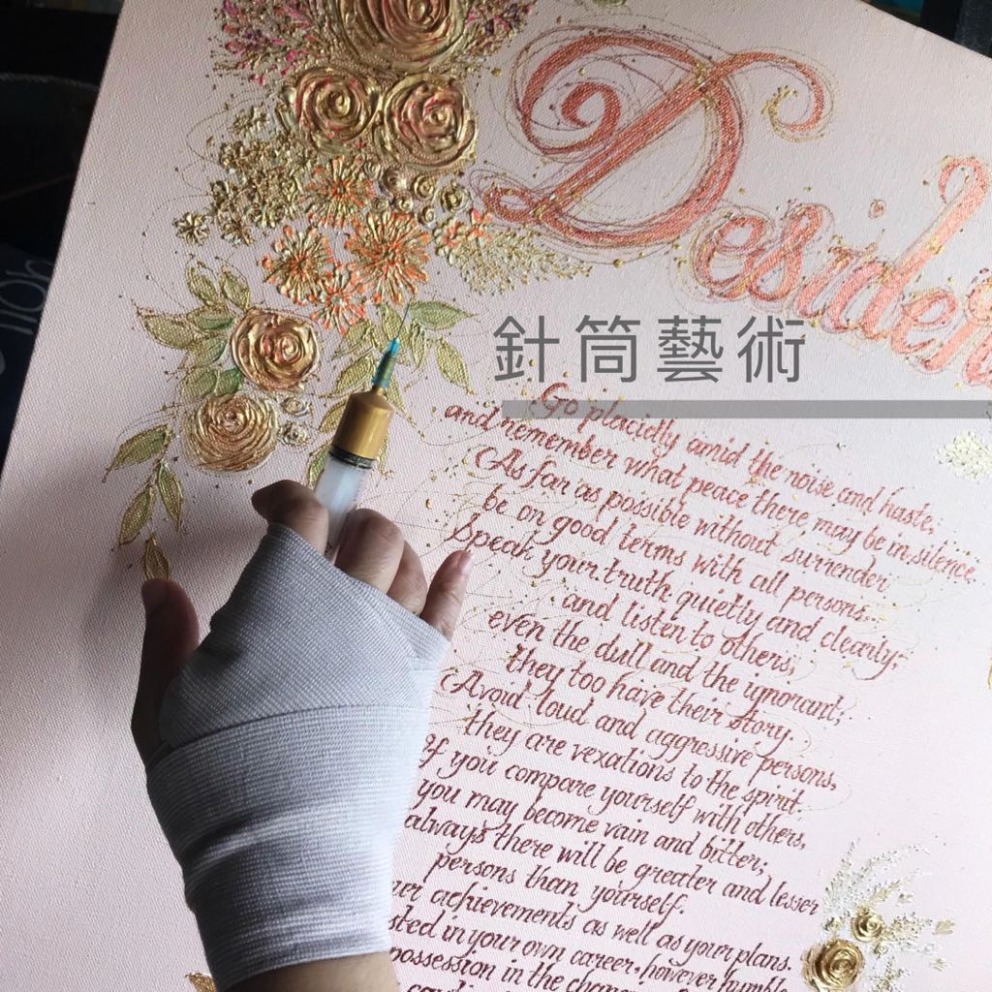 Desider
針筒藝術
Go placidly amid the noise and haste,
and remember what peace there may be in silence.
As far as possible without surrender
be on good terms with all persons.
Speak your truth quietly and clearly;
and listen to others,
even the dull and the ignorant;
they too have their story.
Avoid loud and aggressive persons,
they are vexations to the spirit.
If you compare yourself with others,
you may become vain and bitter;
always there will be greater and lesser
persons than yourself.
achievements as well as your plans.
in your own career, however humble
possession in the